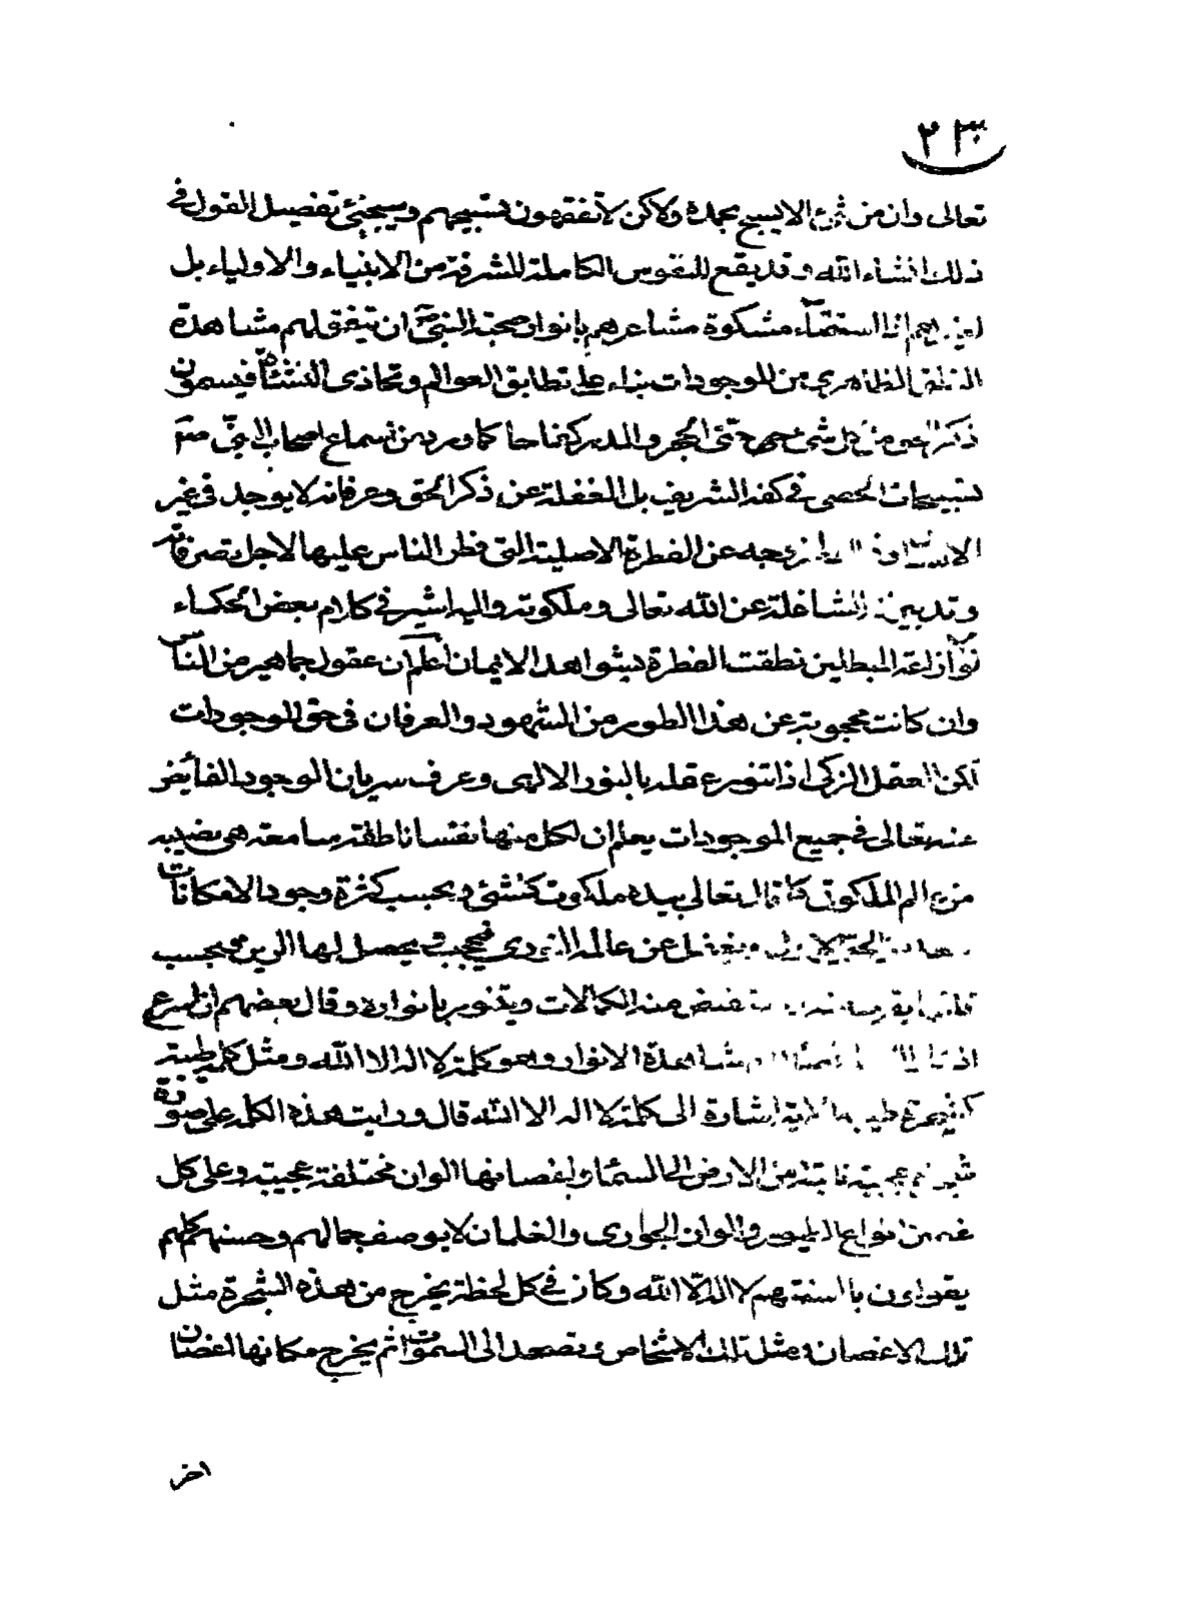 ٢٣
تعالى وان من شئ الا يسبح بحمده ولاكن لا تفقهون تسبيحهم وسيجئ تفصيل القول في
ذلك انشاء الله وقد يقع للنفوس الكاملة المشرفة من الانبياء والاولياء بل
لغيرهم اذا استضاء مشكوة مشاعرهم بانوار صحبة النبي ان يتفق لهم مشاهدة
النطق الظاهري من الموجودات بناء على تطابق العوالم وتحاذى النشئات فيسمعون
ذكر من كل شئ حتى الحجر والمدر كفاحا كما ورد من اسماع اصحاب النبي صم
تسبيحات الحصى في كفه الشريف بل الغفلة عن ذكر الحق وعرفانه لا يوجد في غير
الانسان عن الفطرة الاصلية التي فطر الناس عليها لاجل تصرفاته
وتدبيره الشاغلة عن الله تعالى وملكوته واليه اشير في كلام بعض الحكماء
المبطلين نطقت الفطرة بشواهد الايمان اعلم ان عقول جماهير من الناس
وان كانت محجوبة عن هذا الطور من الشهود والعرفان في حق الموجودات
لكن العقل الزكى اذا تنور عقله بالنور الالهى وعرف سريان الوجود الفائض
عنه تعالى في جميع الموجودات يعلم ان لكل منها نفسا ناطقة سامعة هى نصيبه
من عالم الملكوت كما قال تعالى بيده ملكوت كلشئ وبحسب كثرة وجود الامكانات
عن عالمه النورى فيحجب ويحصل لها الرين وبحسب
منه الكمالات ويتنور بانواره وقال بعضهم
مشاهدة الانوار وهو كلمة لا اله الا الله ومثل كلمة طيبة
كشجرة طيبة اشارة الى كلمة لا اله الا الله قال ورايت هذه الكلمة على صورة
عجيبة نابتة من الارض الى السماء واغصانها الوان مختلفة عجيبة وعلى كل
غصن انواع الطيور والوان الجوارى والغلمان لا يوصف جمالهم وحسنهم كلهم
يقولون بالسنتهم لا اله الا الله وكان في كل لحظة يخرج من هذه الشجرة مثل
تلك الاغصان ومثل تلك الاشخاص وتصعد الى السموات ثم يخرج مكانها اغصان
اخر